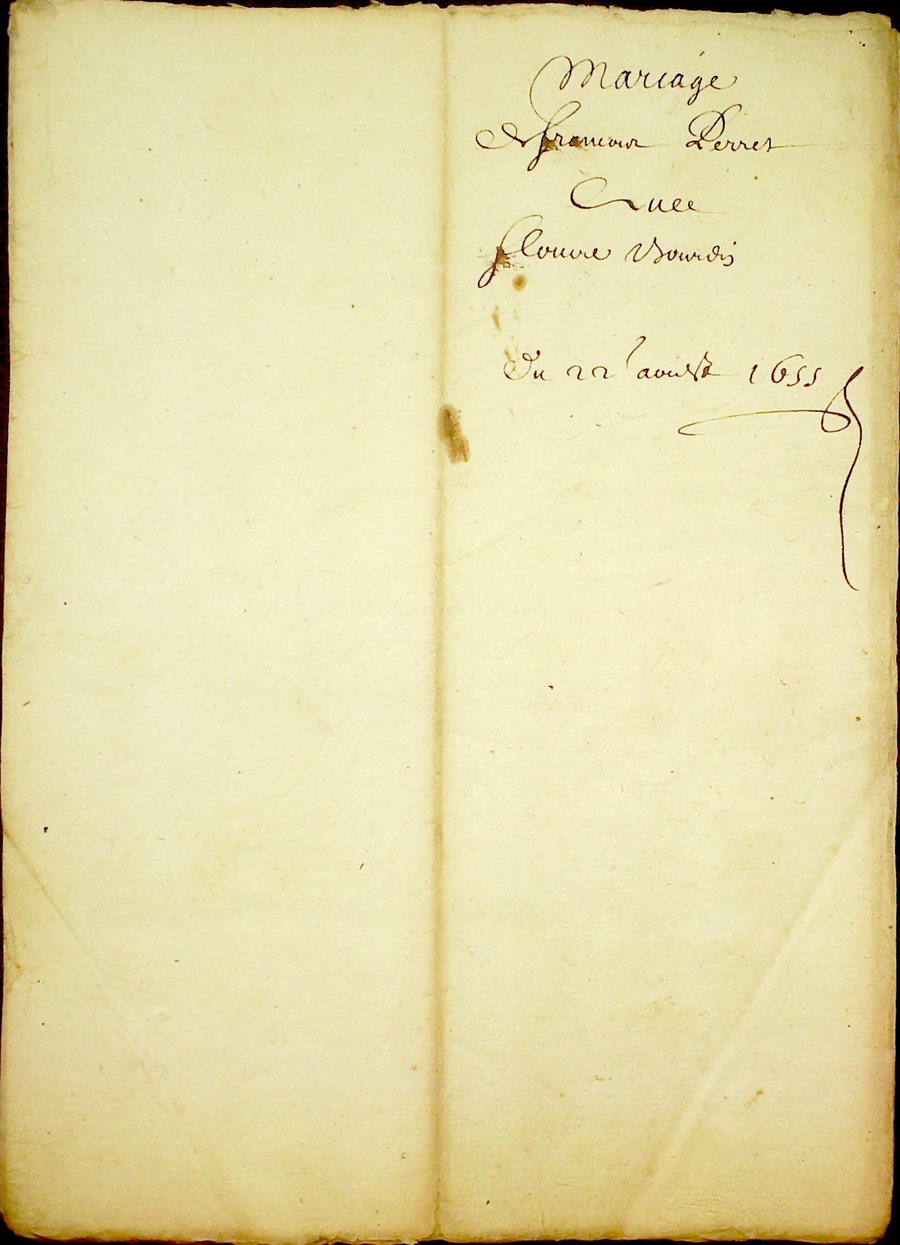 Mariage
de francois Perret
Avec
Bourdin
Du 22 aoust 1655